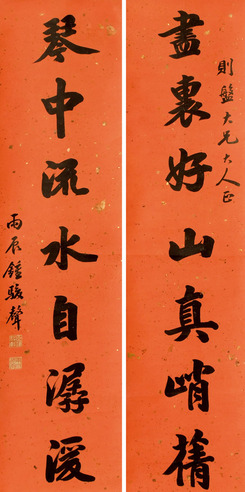 畫裏好山真峭蒨
則盤大兄大人正
琴中流水自潺湲
丙辰鍾駿聲